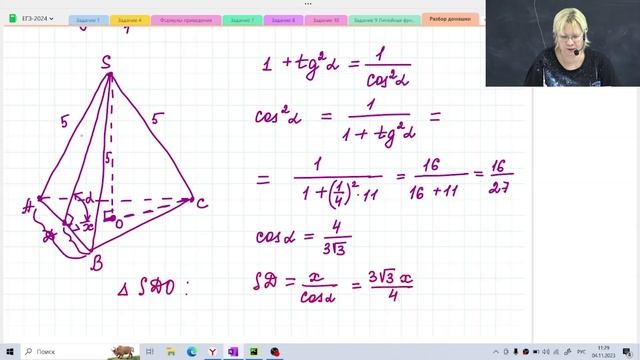 ЕГЭ-2024
Задание 1
Задание 4
Формулы приведения
Задание 7
Задание 8
Задание 10
Задание 9 Линейные фун...
Разбор домашки
1 + tg²α = 1/cos²α
cos²α = 1/(1 + tg²α) =
= 1/(1+(1/4)²·11) = 16/(16+11) = 16/27
cosα = 4/(3√3)
Δ SDO : SD = x/cosα = 3√3 x/4
S
5
5
5
A
α
x
O
C
B
Поиск
РУС
11:29
04.11.2023